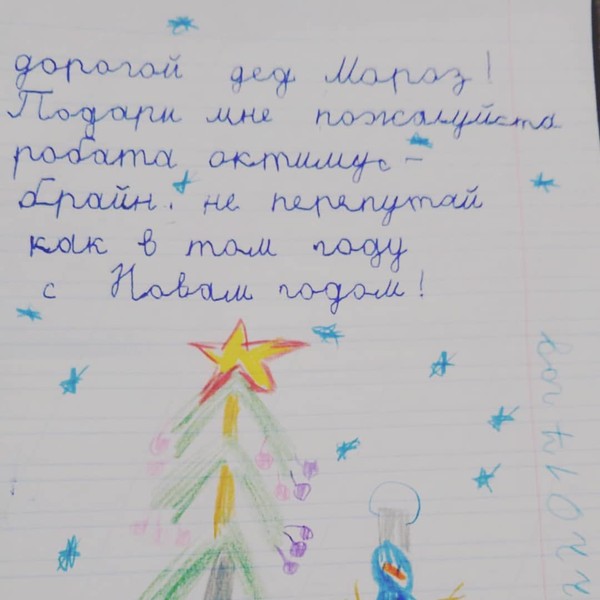 дорогой дед Мороз!
Подари мне пожалуйста
робата октимус-
брайн. не перепутай
как в том году
с Новам годом!